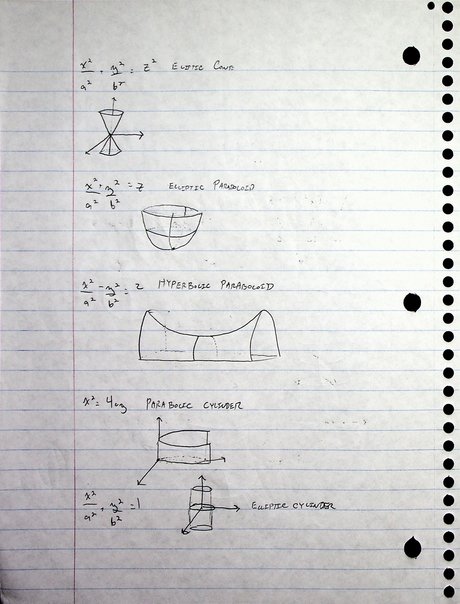 x²/a² + y²/b² = z² ELIPTIC CONE
z
x²/a² + y²/b² = z ELLIPTIC PARABOLOID
x²/a² - y²/b² = z HYPERBOLIC PARABOLOID
x² = 4ay PARABOLIC CYLINDER
x²/a² + y²/b² = 1 ELLIPTIC CYLINDER